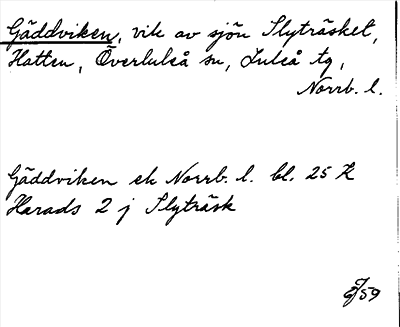 Gäddviken, vik av sjön Slyträsket,
Hatten, Överluleå sn, Luleå tg,
Norrb. l.
Gäddviken ek Norrb. l. bl. 25
Harads 2 j Slyträsk
59